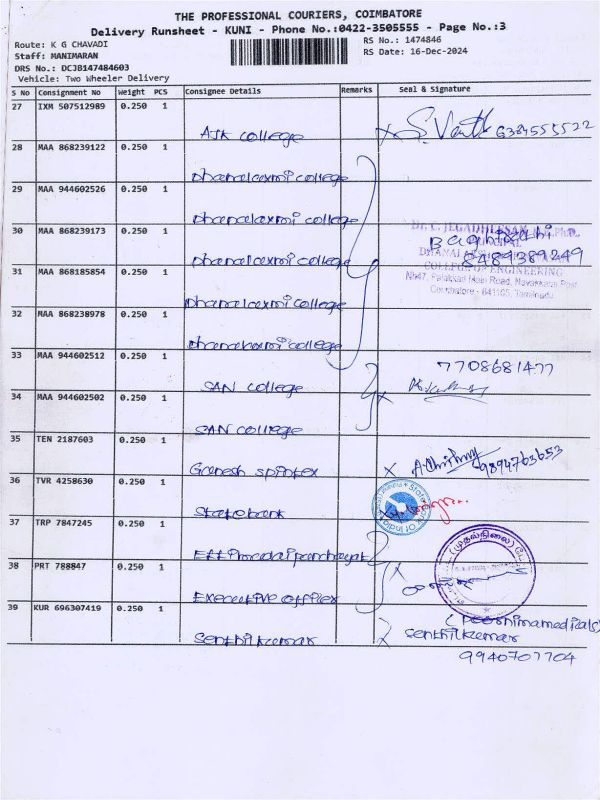 THE PROFESSIONAL COURIERS, COIMBATORE
Delivery Runsheet - KUNI - Phone No.:0422-3505555 - Page No.:3
Route: K G CHAVADI
RS No.: 1474846
Staff: MANIMARAN
RS Date: 16-Dec-2024
DRS No.: DCJB147484603
Vehicle: Two Wheeler Delivery
S No Consignment No Weight PCS Consignee Details Remarks Seal & Signature
27 IXM 507512989 0.250 1
AJK college 6384555522
28 MAA 868239122 0.250 1
Dhanalaxmi college
29 MAA 944602526 0.250 1
Dhanalaxmi college
30 MAA 868239173 0.250 1
Dhanalaxmi college 8489389249
COLLEGE OF ENGINEERING
31 MAA 868185854 0.250 1
Coimbatore - 641105, Tamilnadu
Dhanalaxmi college
32 MAA 868238978 0.250 1
Dhanalaxmi college
33 MAA 944602512 0.250 1
7708681477
SAN college
34 MAA 944602502 0.250 1
SAN college
35 TEN 2187603 0.250 1
Ganesh spintex 9894763653
36 TVR 4258630 0.250 1
State bank
State Bank of India
37 TRP 7847245 0.250 1
Ettimadai panchayat
38 PRT 788847 0.250 1
Executive officer
39 KUR 696307419 0.250 1
Senthilkumar
senthilkumar
9940707704